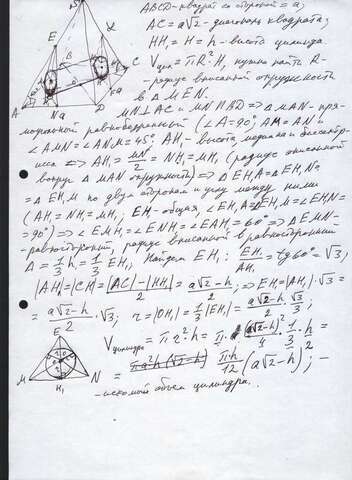 ABCD - квадрат со стороной = a;
AC = a√2 - диагональ квадрата;
HH₁ = H = h - высота цилиндра
Vцил = πR²H, нужно найти R-
радиус вписанной окружности
в ΔMEN.
MN⊥AC и MN∥BD => ΔMAN - пря-
моугольный равнобедренный (∠A=90°, AM=AN =>
∠AMN=∠ANM=45°. AH₁ - высота, медиана и биссектр-
иса => AH₁ = MN/2 = NH₁ = MH₁ (радиус описанной
вокруг ΔMAN окружности) => ΔEH₁A = ΔEH₁N =
= ΔEH₁M по двум сторонам и углу между ними
(AH₁ = NH₁ = MH₁; EH₁ - общая, ∠EH₁A = ∠EH₁M = ∠EH₁N =
= 90°) => ∠EMH₁ = ∠ENH₁ = ∠EAH₁ = 60° => ΔEMN -
- равносторонний, радиус вписанной в равносторонний
Δ = 1/3 h = 1/3 EH₁; Найдем EH₁: EH₁/AH₁ = tg60° = √3;
|AH₁| = |CH| = (|AC| - |HH₁|)/2 = (a√2 - h)/2; => EH₁ = |AH₁|·√3 =
= (a√2 - h)/2 · √3; r = |OH₁| = 1/3 |EH₁| = (a√2 - h)/2 · √3/3;
Vцилиндра = πr²h = π · (a√2 - h)²/4 · 1/3 · h =
= πh/12 (a√2 - h)²; -
- искомый объем цилиндра.
E
B
C
A
N
a
D
a
E
M
H₁
N